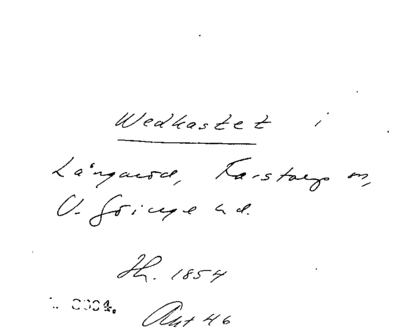 Wedkastet i
Långaröd, Färstorps m,
V. Göinge hd.
Th. 1854
Ant 46